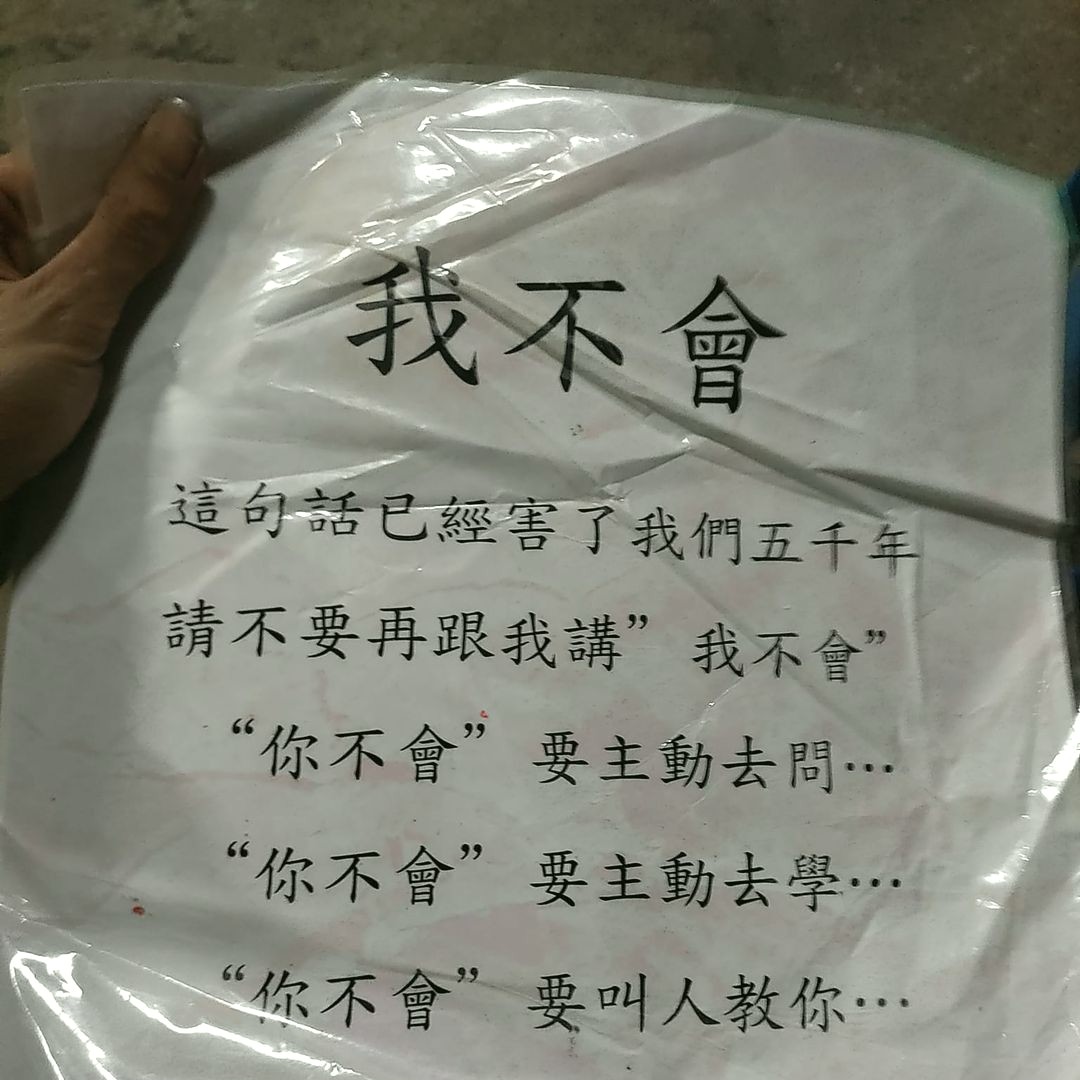 我不會
這句話已經害了我們五千年
請不要再跟我講”我不會”
“你不會” 要主動去問…
“你不會” 要主動去學…
“你不會” 要叫人教你…